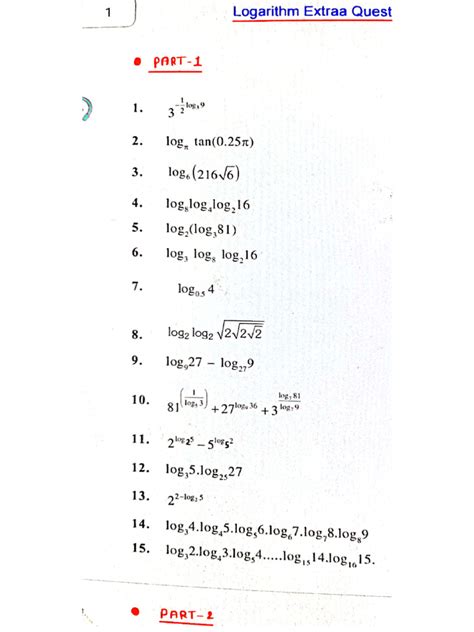 1
Logarithm Extraa Quest
• PART-1
1. 3^{-\frac{1}{2}log_{3}9}
2. log_π tan(0.25π)
3. log_6(216√6)
4. log_8log_4log_2 16
5. log_2(log_3 81)
6. log_3 log_8 log_2 16
7. log_{0.5} 4
8. log_2 log_2 √(2√(2√2))
9. log_9 27 – log_{27} 9
10. 81^{(1/log_5 3)} + 27^{log_9 36} + 3^{log_7 81/log_7 9}
11. 2^{log_2 5} – 5^{log_5 2}
12. log_3 5.log_{25} 27
13. 2^{2–log_2 5}
14. log_3 4.log_4 5.log_5 6.log_6 7.log_7 8.log_8 9
15. log_3 2.log_4 3.log_5 4.....log_{15} 14.log_{16} 15.
• PART-2